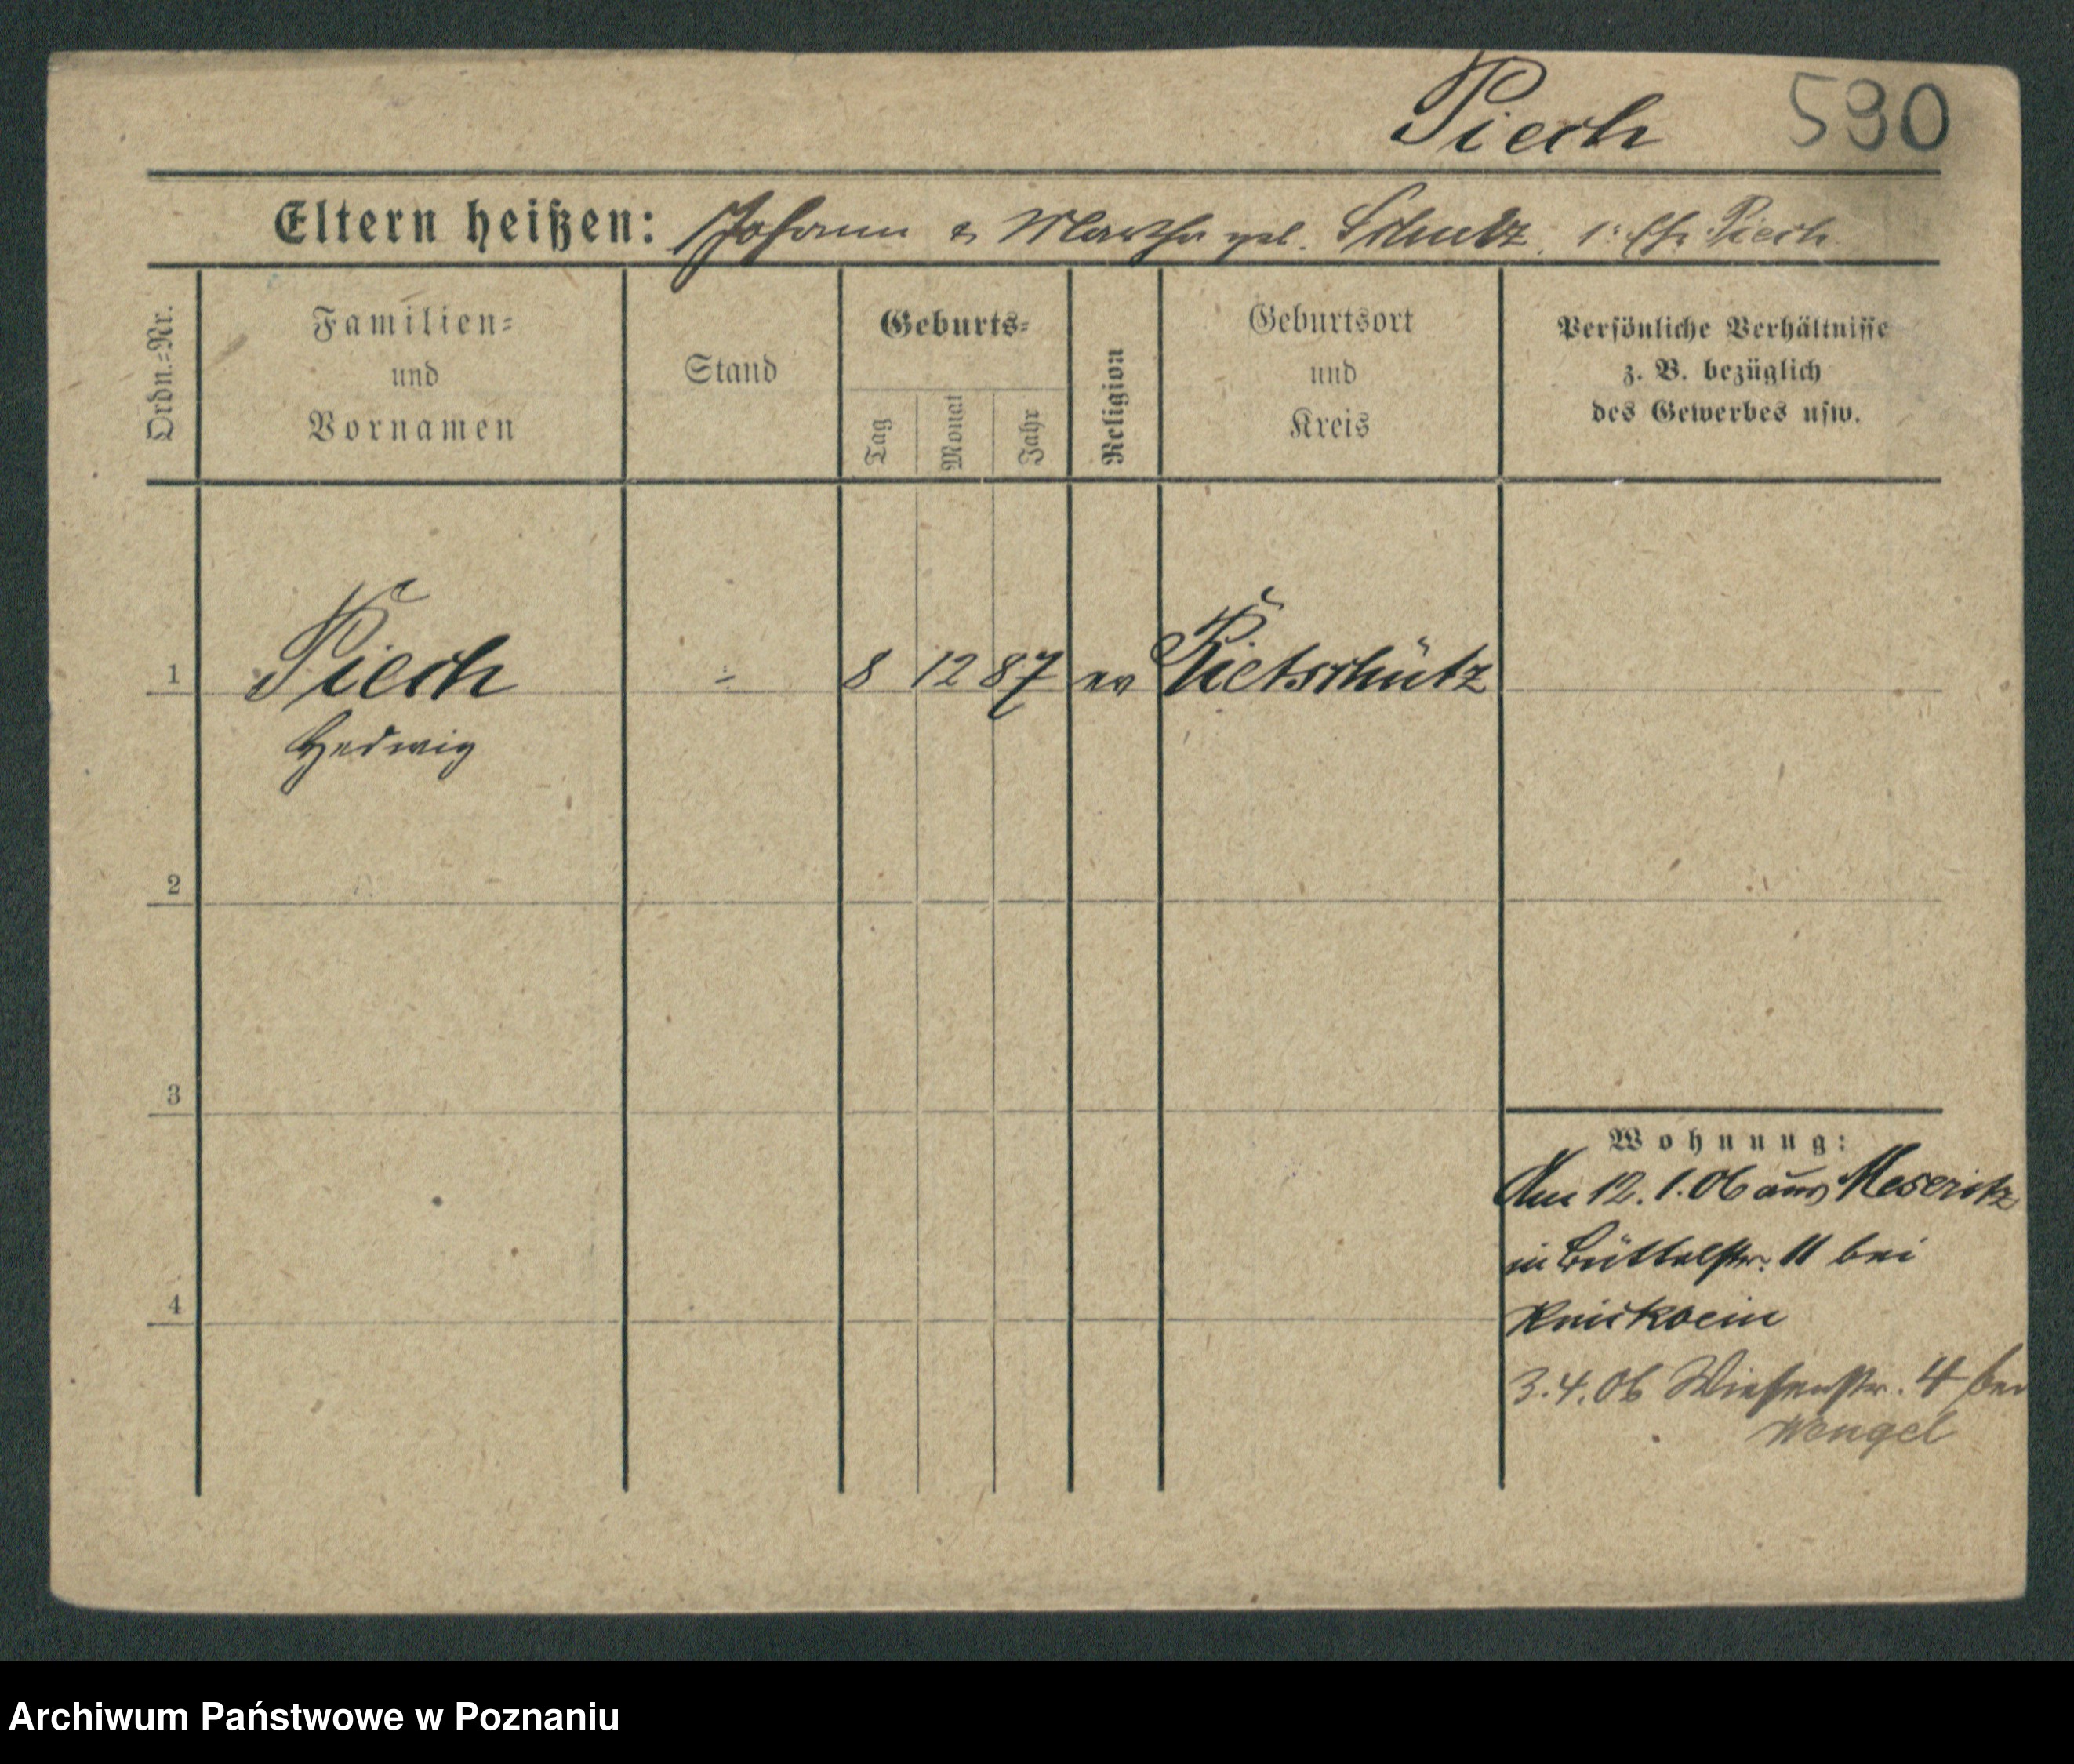 Piech 590
Eltern heißen: Johann & Martha geb. Schulz, 1. Ehe Piech
Ordn.-Nr.
Familien-
und
Vornamen
Stand
Geburts-
Tag
Monat
Jahr
Religion
Geburtsort
und
Kreis
Persönliche Verhältnisse
z. B. bezüglich
des Gewerbes usw.
1 Piech ÷ 8 12 87 ev Rietschütz
Hedwig
2
3
4
Wohnung:
Am 12.1.06 aus Meseritz
in Büttelstr. 11 bei
Knickbein
3.4.06 Wiesenstr. 4 bei
Wengel
Archiwum Państwowe w Poznaniu